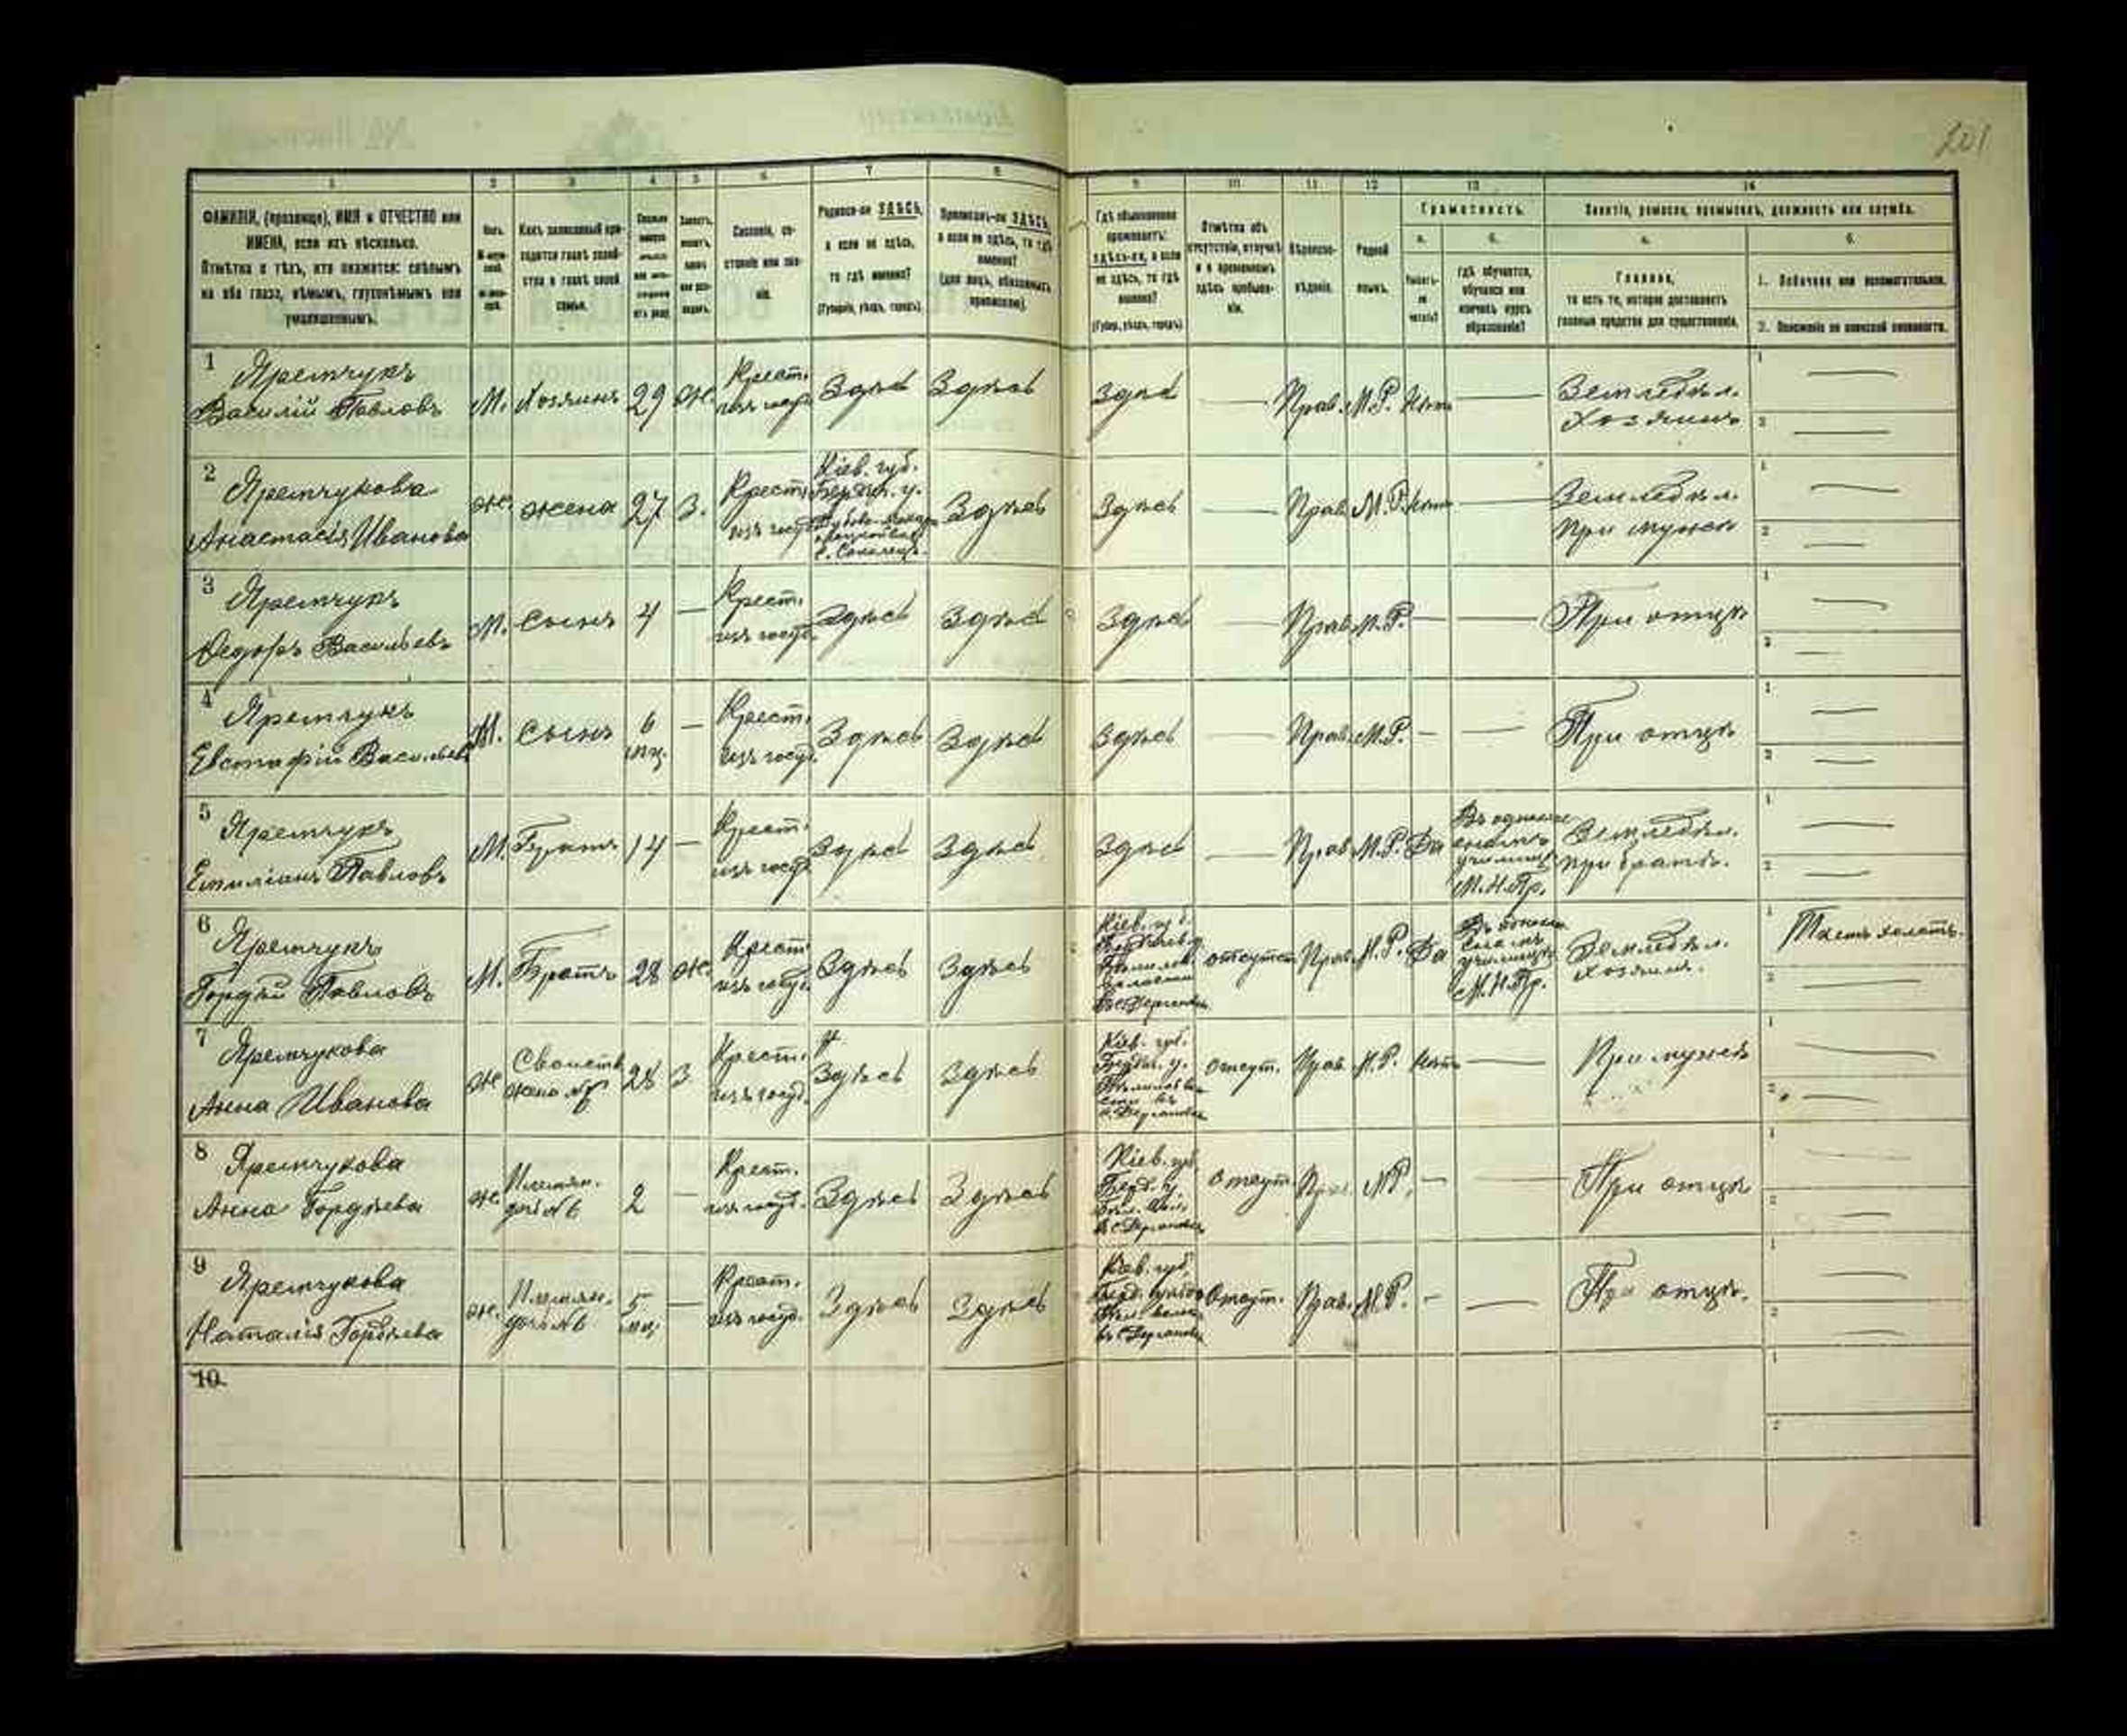 201
1 2 3 4 5 6 7 8 9 10 11 12 13 14
ФАМИЛІЯ, (прозвище), ИМЯ и ОТЧЕСТВО или
ИМЕНА, если ихъ нѣсколько.
Отмѣтка о тѣхъ, кто окажется: слѣпымъ
на оба глаза, нѣмымъ, глухонѣмымъ или
умалишеннымъ.
Полъ.
Какъ записанный при-
ходится главѣ хозяй-
ства и главѣ своей
семьи.
Сословіе, со-
стояніе или зва-
ніе.
Родился-ли ЗДѢСЬ,
а если не здѣсь,
то гдѣ именно?
(Губернія, уѣздъ, городъ).
Приписанъ-ли ЗДѢСЬ,
а если не здѣсь, то гдѣ
именно?
(для лицъ, обязанныхъ
припискою).
Гдѣ обыкновенно
проживаетъ:
здѣсь-ли, а если
не здѣсь, то гдѣ
именно?
(Губер., уѣздъ, городъ)
Отмѣтка объ
отсутствіи, отлучкѣ
и о временномъ
здѣсь пребыва-
ніи.
Вѣроиспо-
вѣданіе.
Родной
языкъ.
Грамотность.
а.
Умѣетъ-
ли
читать?
б.
гдѣ обучается,
обучался или
кончилъ курсъ
образованія?
Занятіе, ремесло, промыселъ, должность или служба.
а.
Главное,
то есть то, которое доставляетъ
главныя средства для существованія.
б.
1. Побочное или вспомогательное.
2. Положеніе по воинской повинности.
1 Яремчукъ
Василій Павловъ
М. Хозяинъ 29 Ж. Крест. Здѣсь Здѣсь Здѣсь — Прав. М.Р. Нѣтъ — Земледѣл.
Хозяинъ
2 Яремчукова
Анастасія Иванова
Ж. жена 27 З. Крест. изъ госуд.
Кіев. губ.
Бердич. у.
Здѣсь Здѣсь — Прав. М.Р. Нѣтъ — Земледѣл.
при мужѣ
3 Яремчукъ
Ѳедоръ Васильевъ
М. Сынъ 4 — Крест. изъ госуд. Здѣсь Здѣсь Здѣсь — Прав. М.Р. — — При отцѣ
4 Яремчукъ
Евстафій Васильевъ
М. Сынъ 6 мц. — Крест. изъ госуд. Здѣсь Здѣсь Здѣсь — Прав. М.Р. — — При отцѣ
5 Яремчукъ
Емиліанъ Павловъ
М. Братъ 14 — Крест. изъ госуд. Здѣсь Здѣсь Здѣсь — Прав. М.Р. Да
училищѣ
М.Н.Пр.
Земледѣл.
при братѣ.
6 Яремчукъ
Гордѣй Павловъ
М. Братъ 28 Ж. Крест. изъ госуд. Здѣсь Здѣсь
Кіев. губ.
отсутст. Прав. М.Р. Да
училищѣ
М.Н.Пр.
Земледѣл.
хозяинъ.
7 Яремчукова
Анна Иванова
Ж. Свойств. 28 З. Крест. изъ госуд. Здѣсь Здѣсь
Кіев. губ.
Бердич. у.
отсут. Прав. М.Р. Нѣтъ — При мужѣ
8 Яремчукова
Анна Гордѣева
Ж. Племян. 2 — Крест. изъ госуд. Здѣсь Здѣсь
Кіев. губ.
Берд. у.
отсут. Прав. М.Р. — — При отцѣ
9 Яремчукова
Наталія Гордѣева
Ж. Племян. 5 мц. — Крест. изъ госуд. Здѣсь Здѣсь
Кіев. губ.
Отсут. Прав. М.Р. — — При отцѣ.
10.